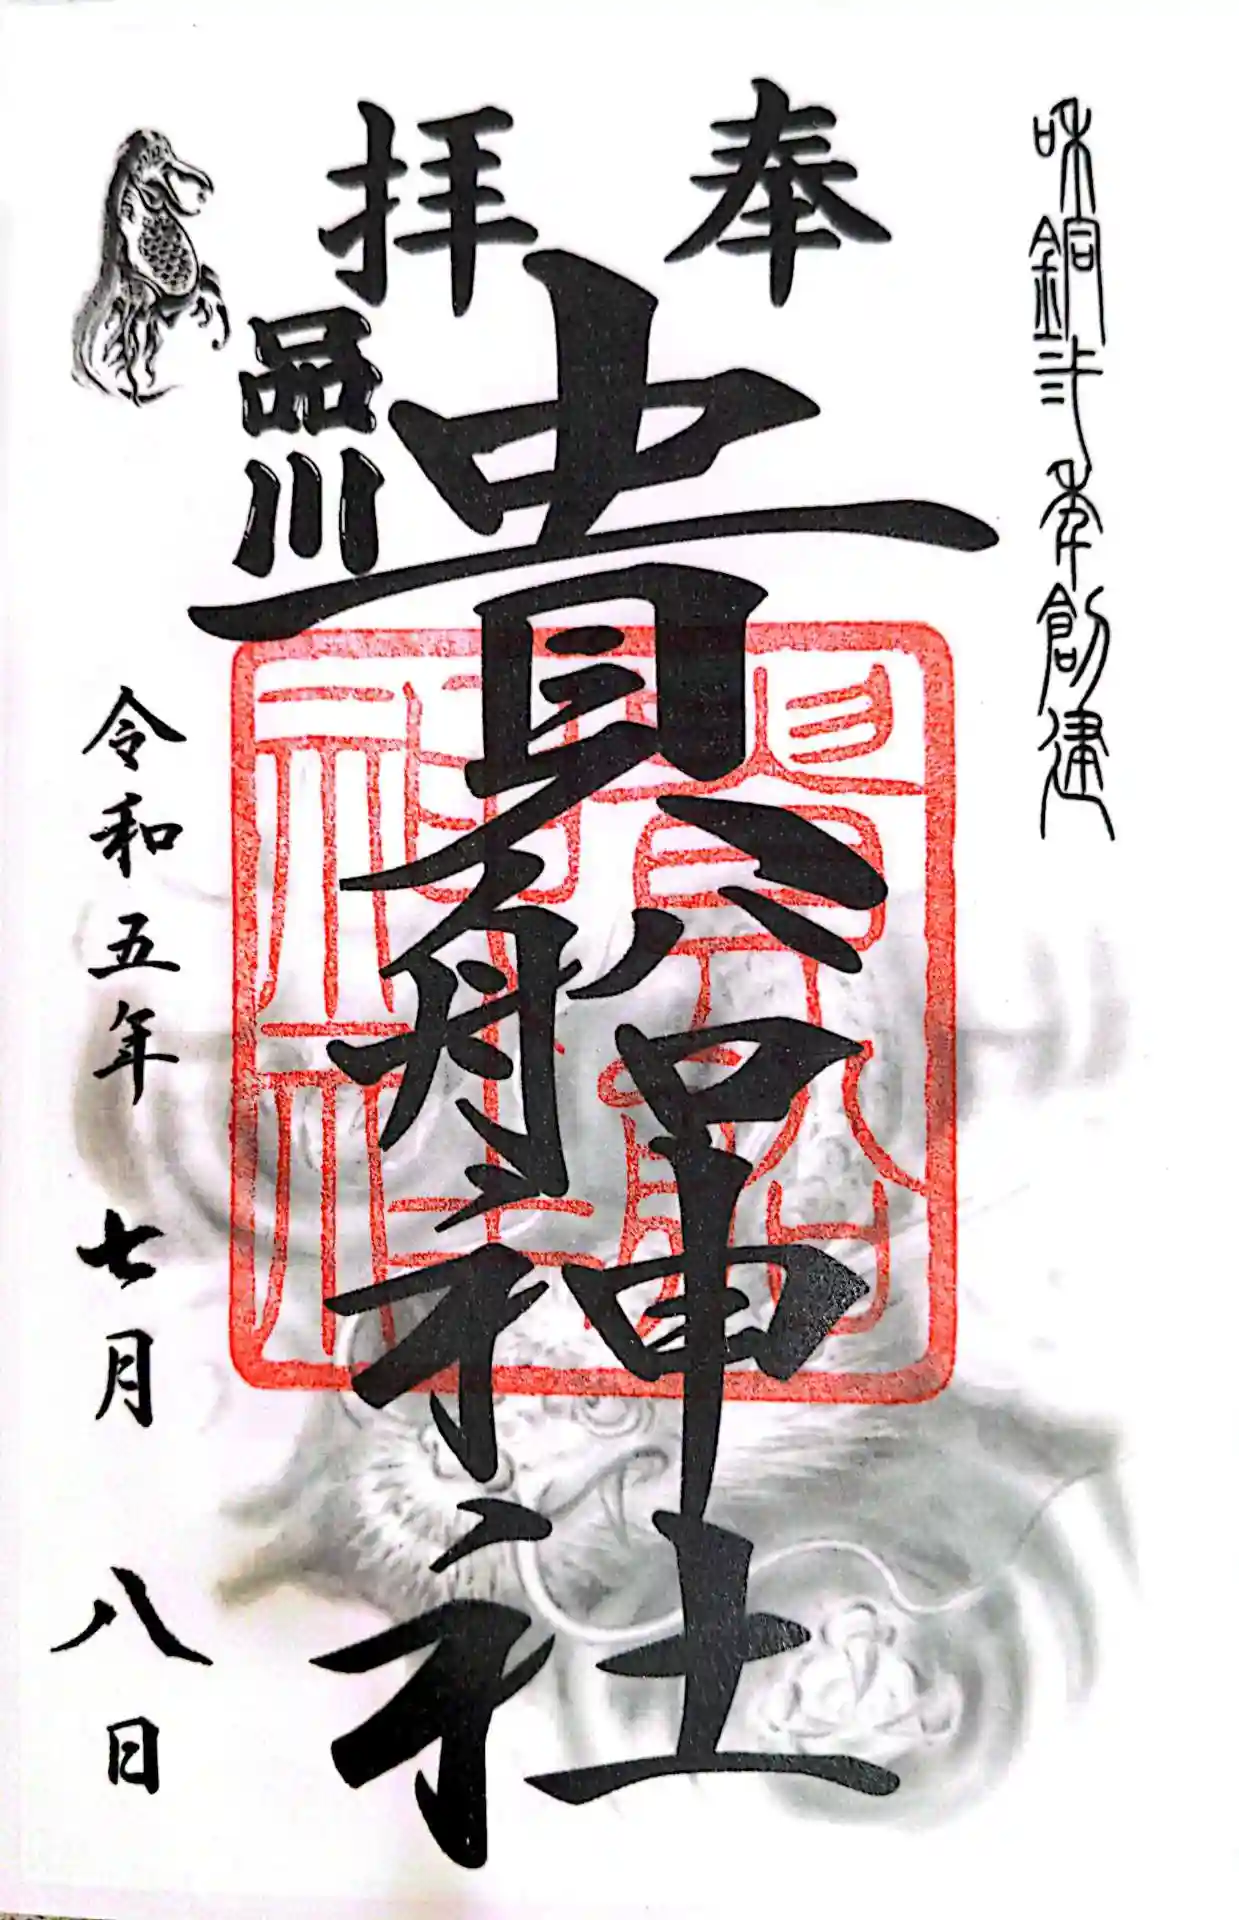 和銅弐年創建
奉拝
品川
貴船神社
貴船神社
令和五年七月八日